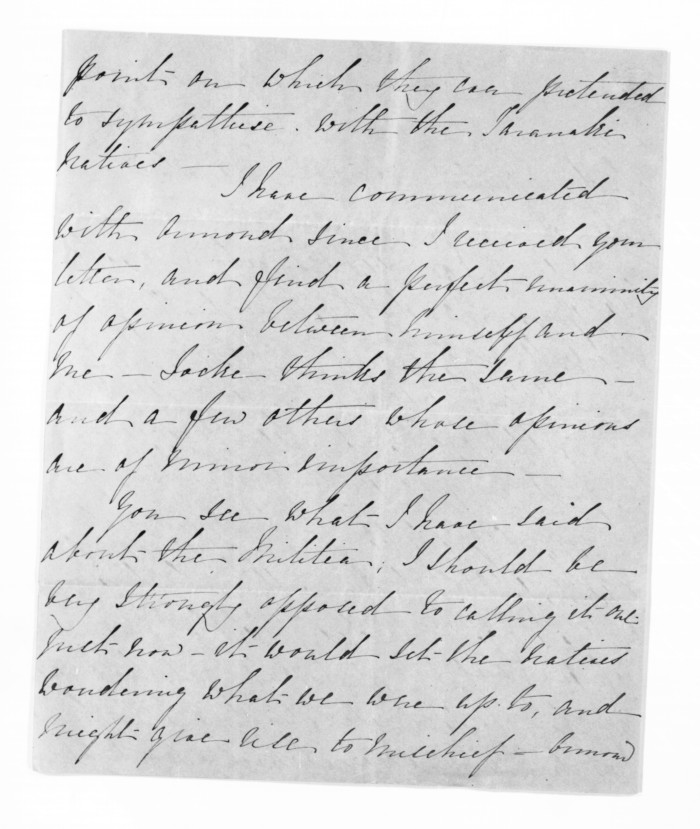 point on which they ever pretended
to sympathise with the Taranaki
natives —
I have communicated
with Ormond since I received your
letter, and find a perfect unanimity
of opinion between himself and
me — Locke thinks the same —
and a few others whose opinions
are of minor importance —
You see what I have said
about the Militia; I should be
very strongly opposed to calling it out
just now — it would set the natives
wondering what we were up to, and
might give rise to mischief — Ormond